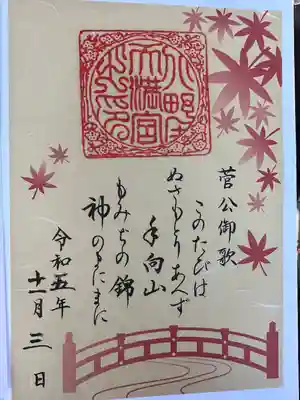 北野
天満宮
菅公御歌
このたびは
ぬさもとりあへず
手向山
もみぢの錦
神のまにまに
令和五年
十一月三日